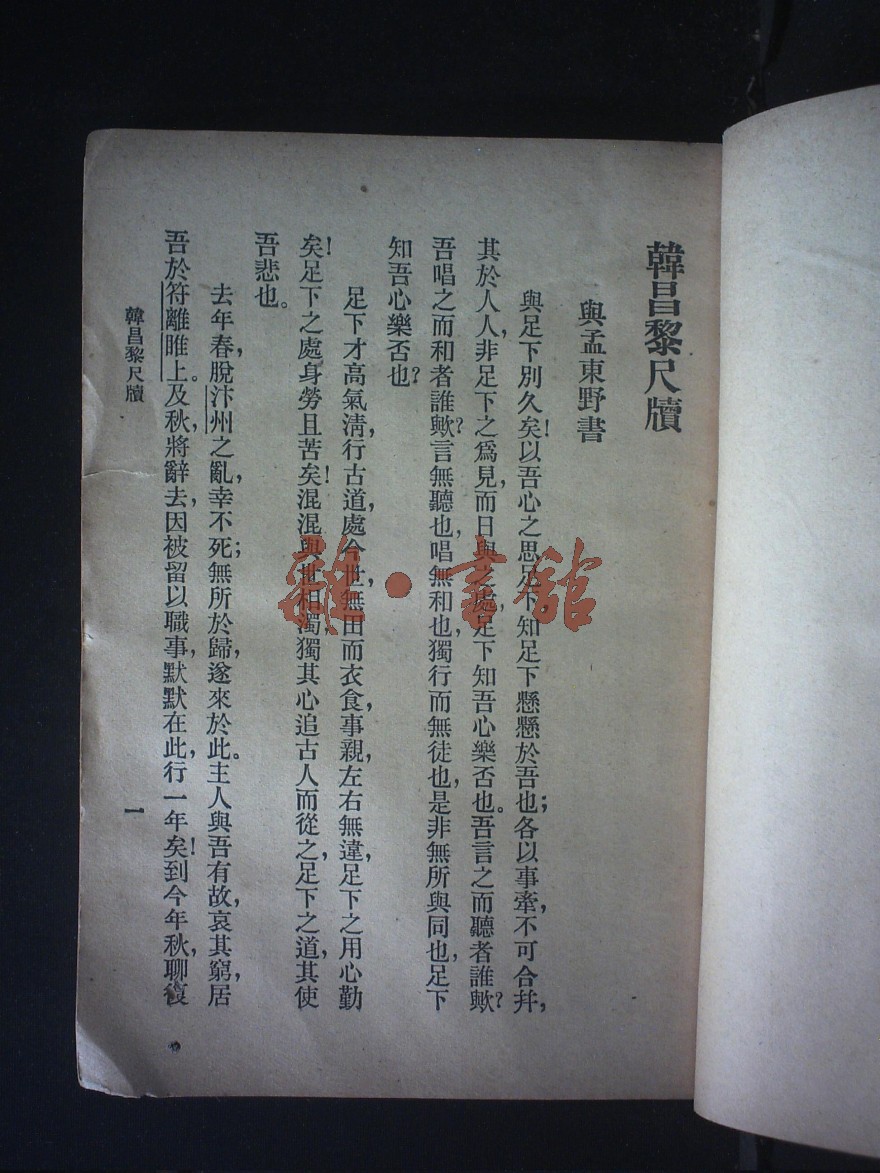 韓昌黎尺牘
與孟東野書
與足下別久矣！以吾心之思足下，知足下懸懸於吾也；各以事牽，不可合幷，
其於人人，非足下之爲見，而日與之處，足下知吾心樂否也。吾言之而聽者誰歟？
吾唱之而和者誰歟？言無聽也，唱無和也，獨行而無徒也，是非無所與同也，足下
知吾心樂否也？
足下才高氣淸，行古道，處今世，無田而衣食，事親，左右無違，足下之用心勤
矣！足下之處身勞且苦矣！混混與世相濁，獨其心追古人而從之，足下之道，其使
吾悲也。
去年春，脫汴州之亂，幸不死；無所於歸，遂來於此。主人與吾有故，哀其窮，居
吾於符離睢上。及秋，將辭去，因被留以職事，默默在此，行一年矣！到今年秋，聊復
韓昌黎尺牘
一
雜·書館